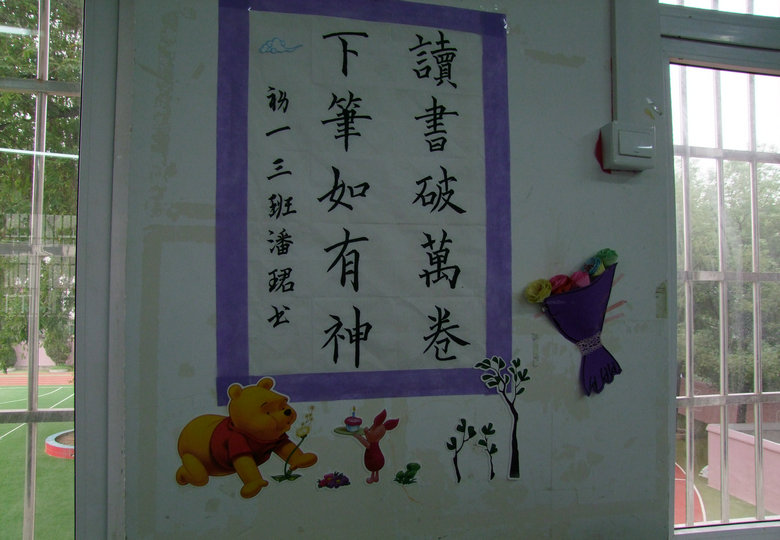 讀書破萬卷
下筆如有神
初一三班潘珺书